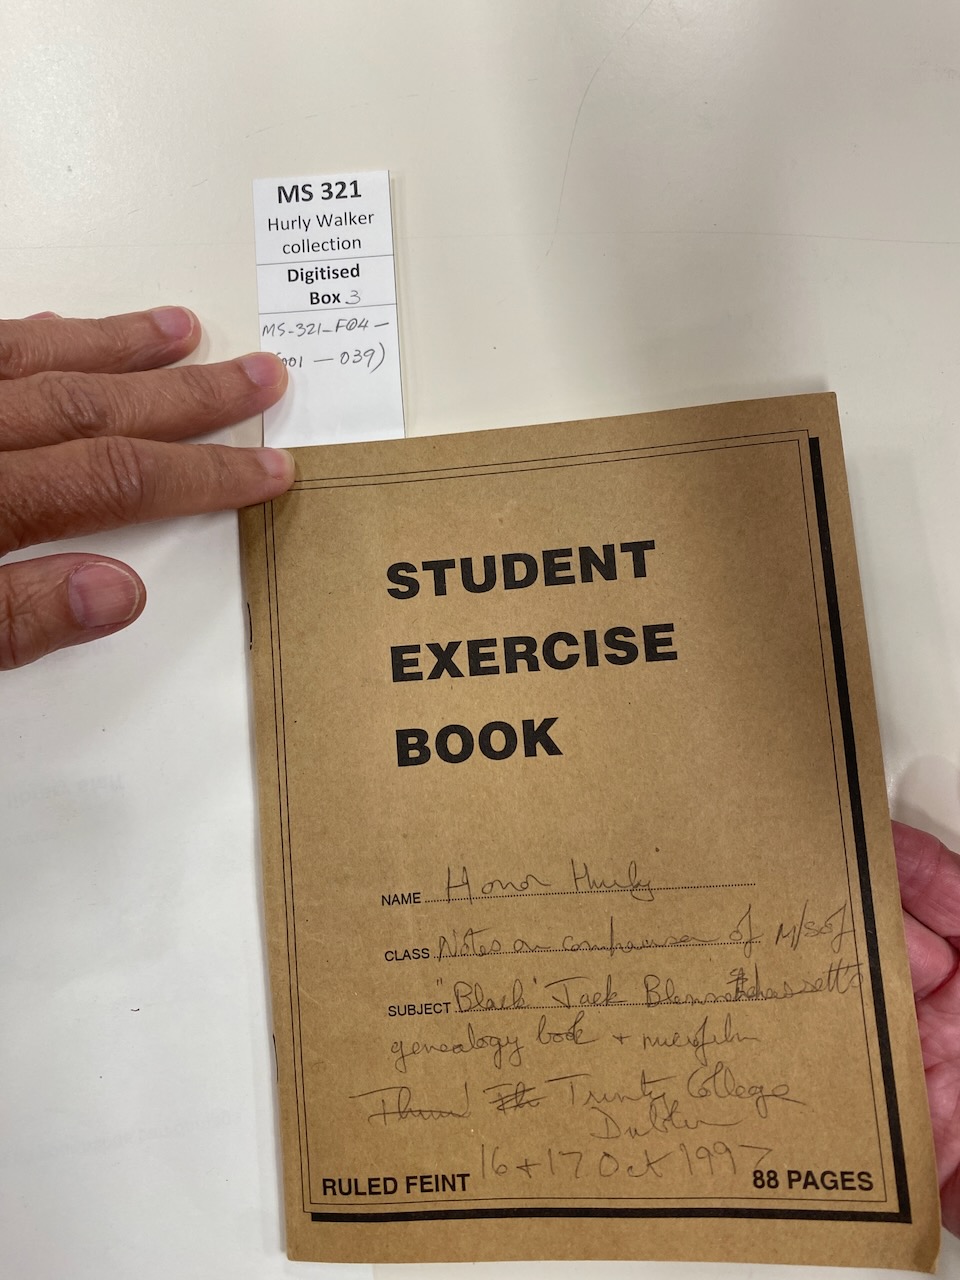 MS 321
Hurly Walker
collection
Digitised
Box 3
MS-321-F04-
(001 — 039)
STUDENT
EXERCISE
BOOK
NAME Honor Hurly
CLASS Notes on comparison of M/S of
SUBJECT "Black" Jack Blennerhassett's
genealogy book + microfilm
Trinity College
Dublin
16 + 17 Oct 1997
RULED FEINT 88 PAGES